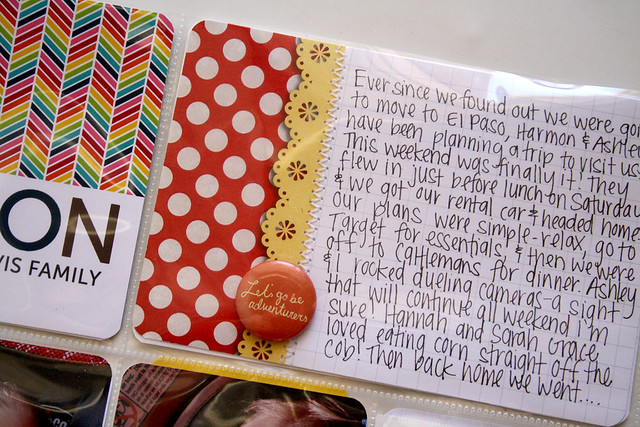 ON
VIS FAMILY
Let's go be
adventurers
Ever since we found out we were
to move to El Paso, Harmon &
have been planning a trip to visit us.
This weekend was finally it! They
flew in just before lunch on Saturday
& we got our rental car & headed home.
Our plans were simple- relax, go to
Target for essentials, & then we were
off to Cattlemans for dinner. Ashley
& I rocked dueling cameras- a sight
that will continue all weekend i'm
sure. Hannah and Sarah Grace
loved eating corn straight off the
cob! Then back home we went....